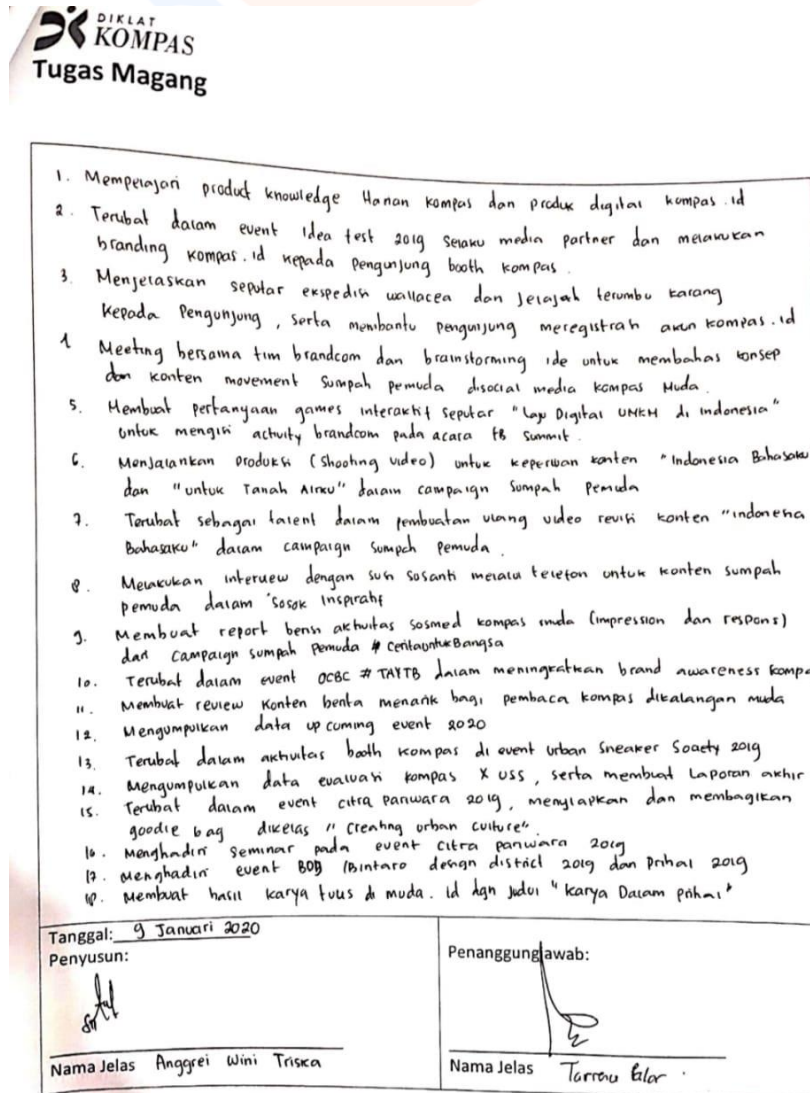 DIKLAT
KOMPAS
Tugas Magang
1. Mempelajari product knowledge Harian Kompas dan produk digital kompas.id
2. Terlibat dalam event Idea fest 2019 selaku media partner dan melakukan
branding kompas.id kepada pengunjung booth kompas.
3. Menjelaskan seputar ekspedisi wallacea dan Jelajah terumbu karang
kepada Pengunjung, serta membantu pengunjung meregistrasi akun kompas.id
4 Meeting bersama tim brandcom dan brainstorming ide untuk membahas konsep
dan konten movement Sumpah pemuda disocial media kompas Muda.
5. Membuat pertanyaan games interaktif seputar "Laju Digital UMKM di indonesia"
untuk mengisi activity brandcom pada acara FB Summit.
6. Menjalankan produksi (shooting video) untuk keperluan konten "Indonesia Bahasaku
dan "untuk Tanah Airku" dalam campaign Sumpah Pemuda
7. Terlibat sebagai talent dalam pembuatan ulang video revisi konten "indonesia
Bahasaku" dalam campaign sumpah pemuda.
8. Melakukan interview dengan susi susanti melalui telefon untuk konten sumpah
pemuda dalam "Sosok Inspiratif
9. Membuat report berisi aktivitas sosmed kompas muda (impression dan respons)
dari campaign sumpah pemuda # CeritauntukBangsa
10. Terlibat dalam event OCBC # TAYTB dalam meningkatkan brand awareness kompa
11. Membuat review konten berita menarik bagi pembaca kompas dikalangan muda
12. Mengumpulkan data up coming event 2020
13. Terlibat dalam aktivitas booth kompas di event urban Sneaker Society 2019
14. Mengumpulkan data evaluasi kompas X USS, serta membuat Laporan akhir
15. Terlibat dalam event citra pariwara 2019, menyiapkan dan membagikan
goodie bag dikelas "creating urban culture".
16. Menghadiri seminar pada event citra pariwara 2019
17. Menghadiri event BDD (Bintaro design district 2019 dan Prihal 2019
18. Membuat hasil karya tulis di muda.id dgn judul "Karya Dalam prihal"
Tanggal: 9 Januari 2020
Penyusun:
Penanggungjawab:
Nama Jelas Anggrei Wini Triska
Nama Jelas